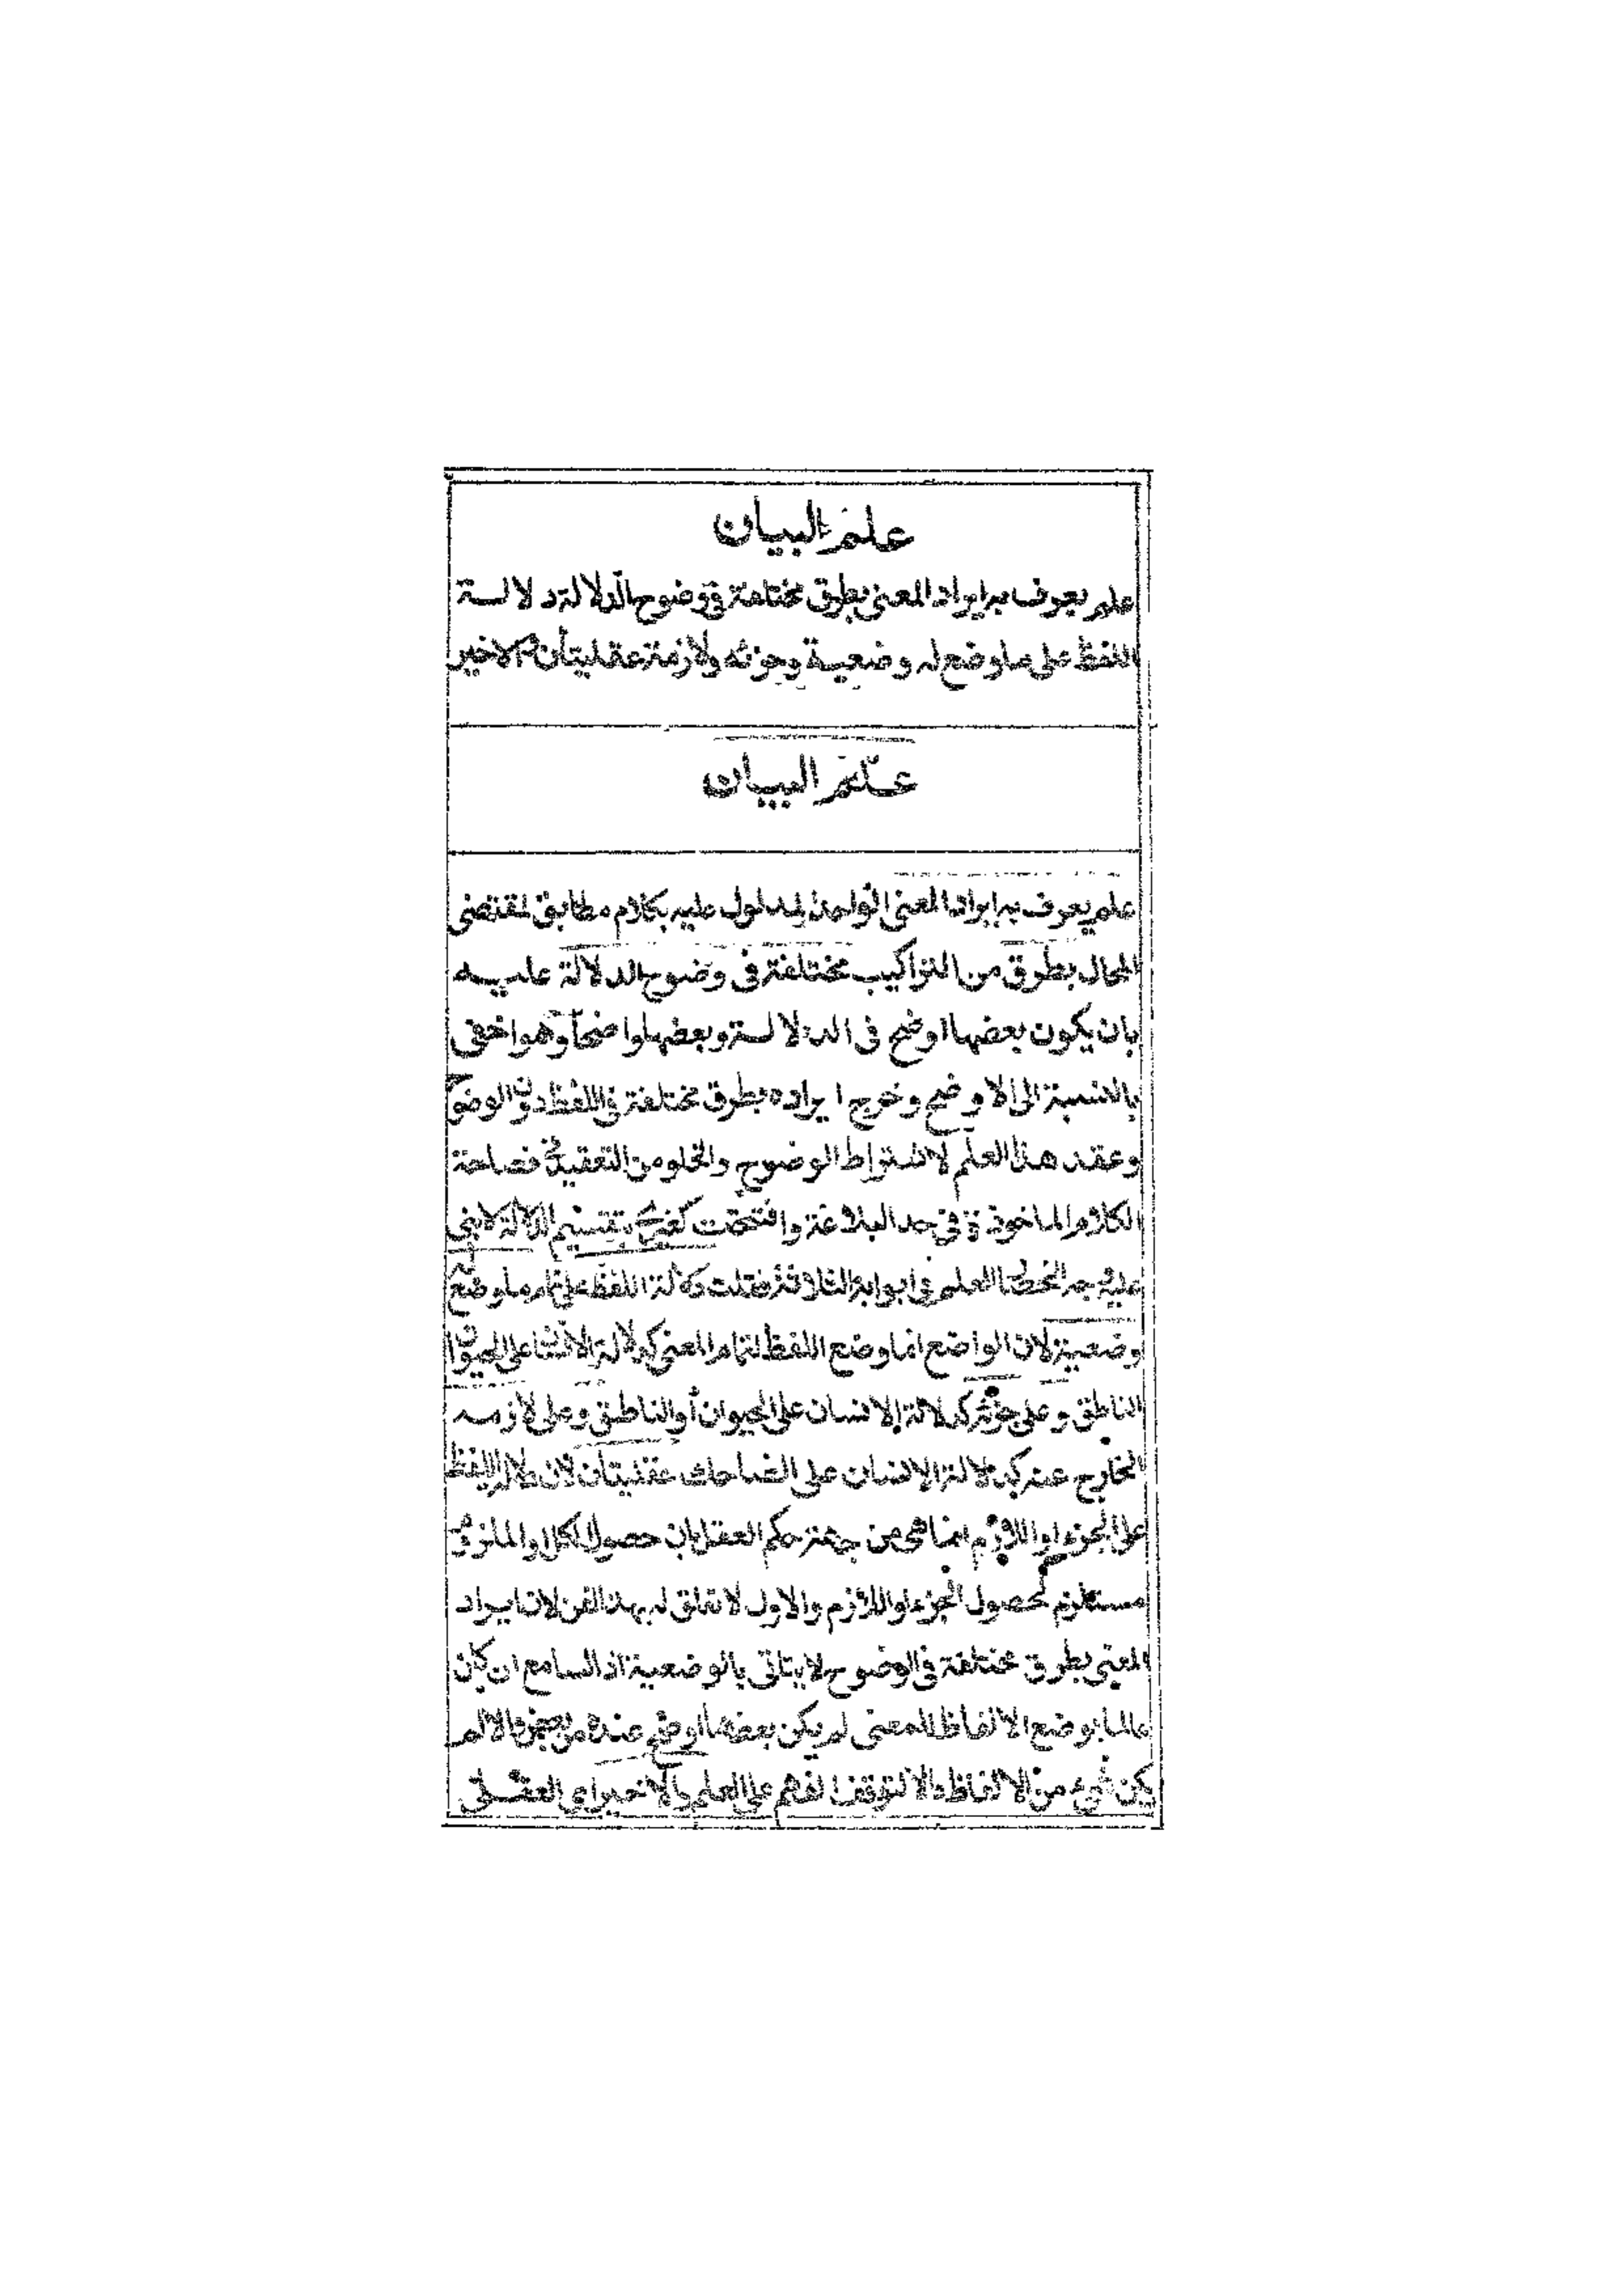 علم البيان
علم يعرف به ايراد المعنى بطرق مختلفة في وضوح الدلالة دلالة
اللفظ على ما وضع له وضعية وجزئه ولازمة عقليتان والاخير
علم البيان
علم يعرف به ايراد المعنى الواحد المدلول عليه بكلام مطابق لمقتضى
الحال بطرق من التراكيب مختلفة في وضوح الدلالة عليه
بان يكون بعضها اوضح فى الدلالة وبعضها واضحا وهو اخفى
بالنسبة الى الاوضح وخرج ايراده بطرق مختلفة في اللفظ دون الوضوح
وعقد هذا العلم لاشتراط الوضوح والخلو من التعقيد في فصاحة
الكلام الماخوذة في حد البلاغة وافتتحت كغيري بتقسيم الدلالة لابني
عليه وجه انحطا العلم في ابوابه الثلاثة فقلت دلالة اللفظ على تمام ما وضع
وضعية لان الواضع انما وضع اللفظ لتمام المعنى كدلالة الانسان على الحيوان
الناطق وعلى جزئه كدلالة الانسان على الحيوان أو الناطق وعلى لازمه
الخارج عنه كدلالة الانسان على الضاحك عقليتان لان دلالة اللفظ
على الجزء او اللازم انما هي من جهة حكم العقل بان حصول الكل او الملزوم
مستلزم لحصول الجزء او اللازم والاول لا تعلق له بهذا الفن لان ايراد
المعنى بطرق مختلفة في الوضوح لا يتاتى بالوضعية اذ السامع ان كان
عالما بوضع الالفاظ للمعنى لم يكن بعضها اوضح عنده من بعض والا لم
يكن شيء من الالفاظ دالا لتوقف الفهم على العلم والاخير اى العقلى